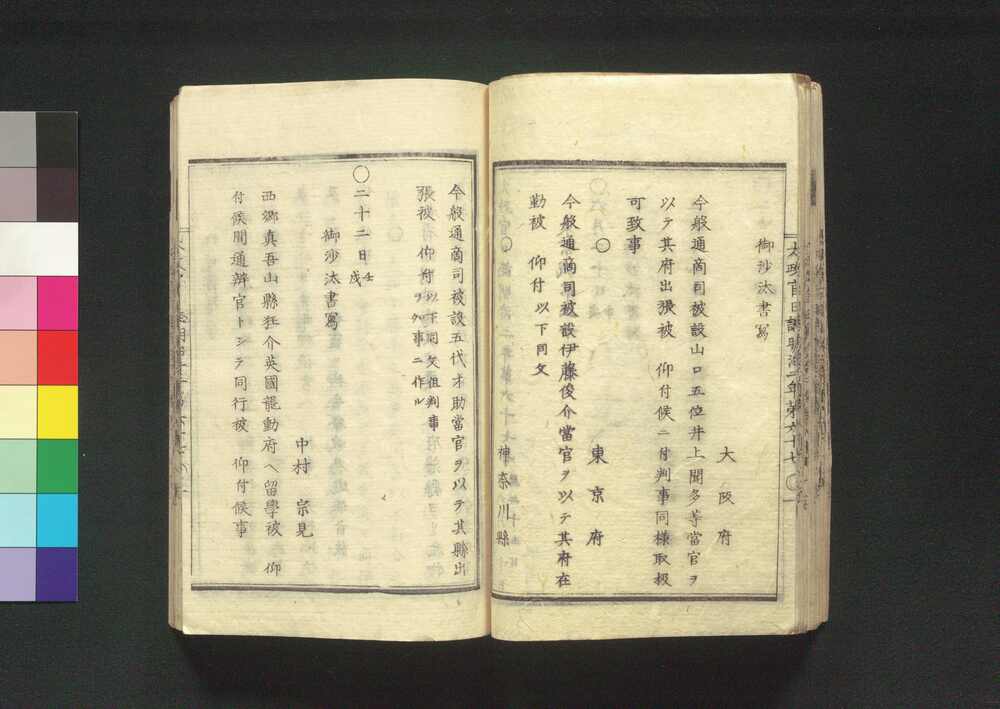 太政官日誌明治二年第六十七
御沙汰書寫
大阪府
今般通商司被設山口五位井上聞多等當官ヲ
以テ其府出張被 仰付候ニ付判事同樣取扱
可致事
○ 東京府
今般通商司被設伊藤俊介當官ヲ以テ其府在
勤被 仰付以下同文
○ 神奈川縣
今般通商司被設五代才助當官ヲ以テ其縣出
張被 仰付以下同文但判事ヲ知事ニ作ル
○二十二日壬戌
御沙汰書寫
中村 宗見
西郷真吾山縣狂介英國龍動府ヘ留學被 仰
付候間通辨官トシテ同行被 仰付候事